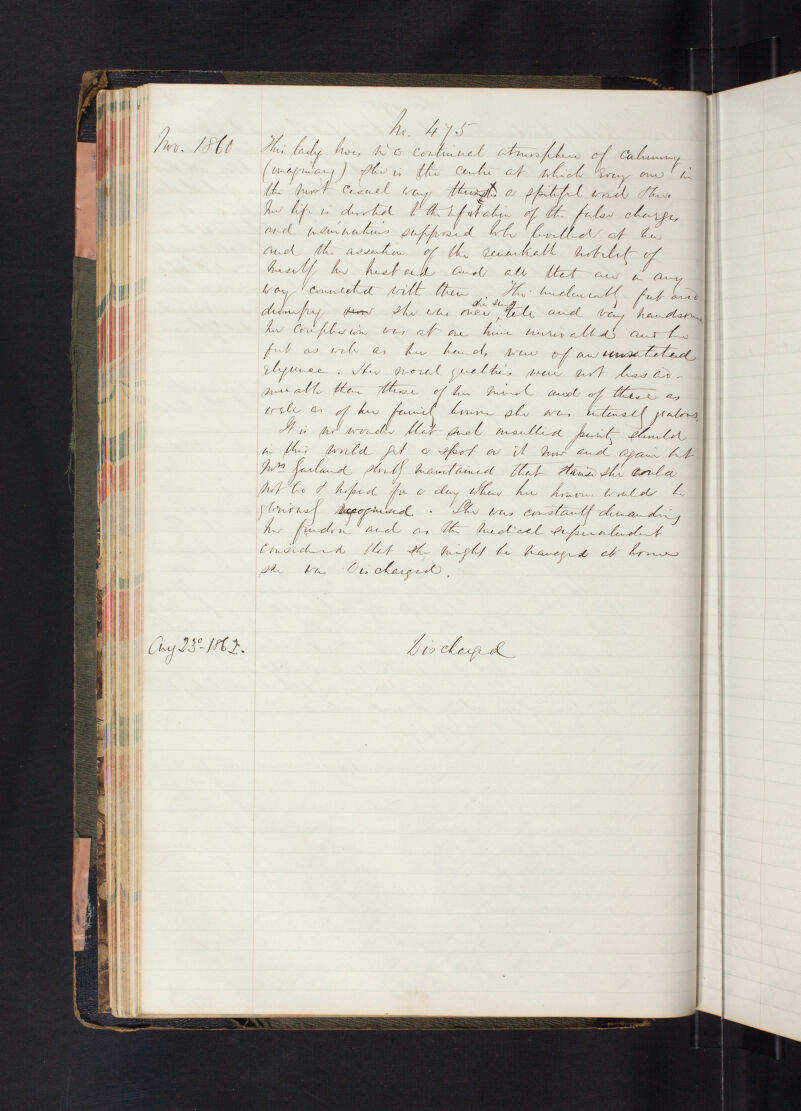 No. 475
Nov. 1860 This lady lives in a continual atmosphere of calumny
(imaginary) She is the centre at which every one in
the most casual way thrusts a spiteful word &
her life is devoted to the refutation of the false charges
and insinuations supposed to be levelled at her
and the assertion of the remarkable nobility of
herself her husband and all that are in any
way connected with them. Tho' undeniably fat and
dumpy she was once, she said, tall and very handsome
her complexion was at one time unrivalled and her
feet as well as her hands were of an
elegance. Her moral qualities were not less ad-
mirable than those of her mind and of these as
well as of her family honour she was intensely jealous.
It is no wonder that such unsullied purity should
in this world get a spot on it now and again but
Mrs Garland stoutly maintained that she could
not be & hoped for a day when her honour would be
gloriously recognised. She was constantly demanding
her freedom and as the medical superintendent
considered that she might be managed at home
she was Discharged.
Aug 23d 1862. Discharged